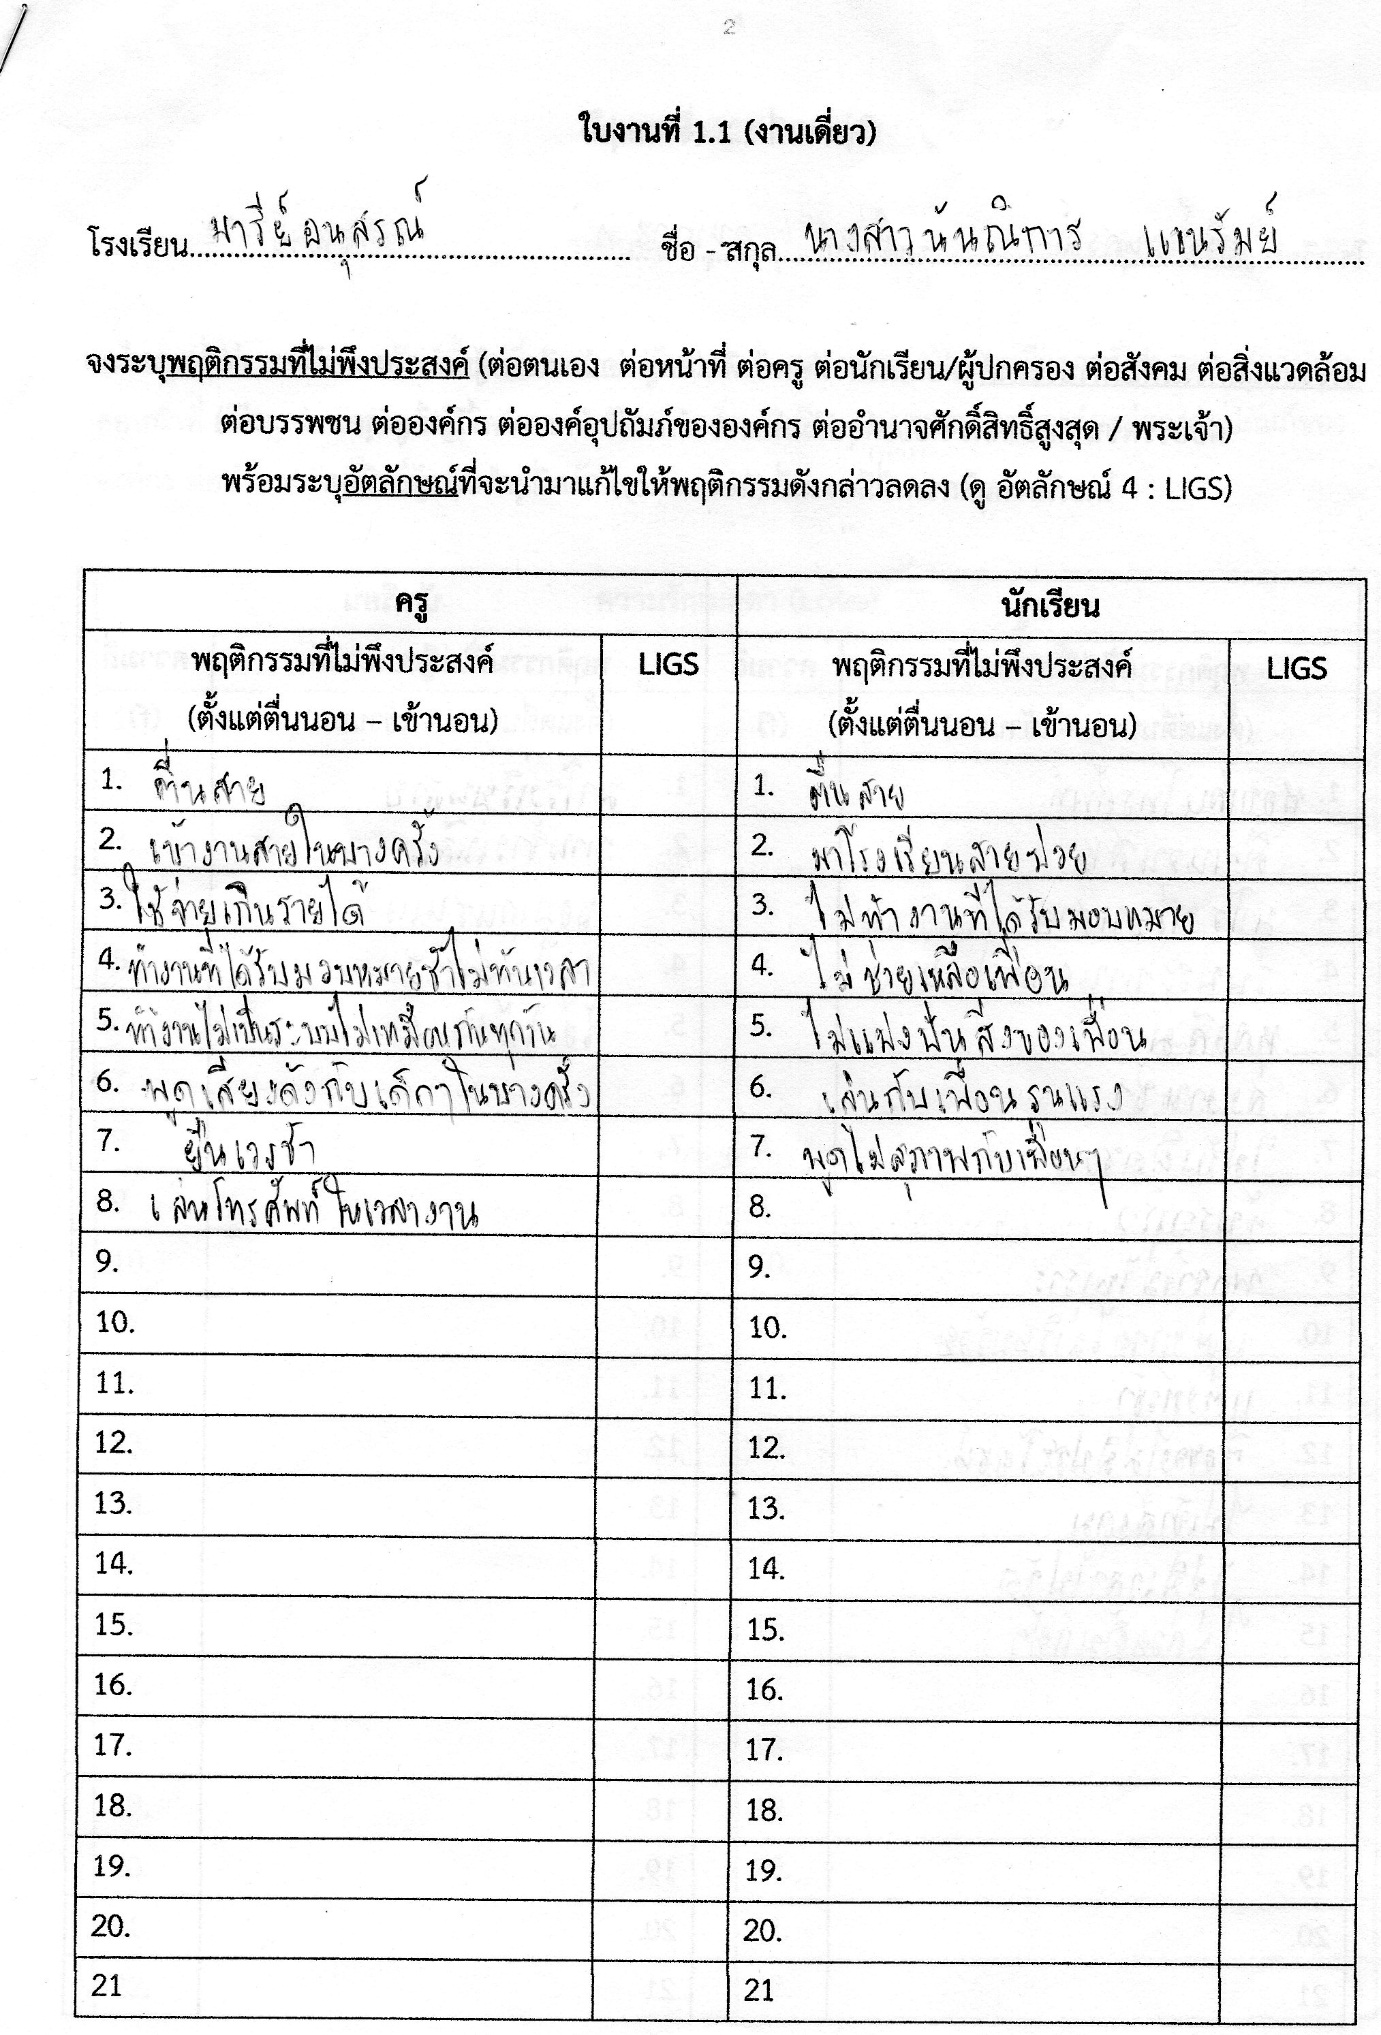 2
ใบงานที่ 1.1 (งานเดี่ยว)
โรงเรียน มารีย์อนุสรณ์ ชื่อ - สกุล นางสาวนันณิการ แขนรัมย์
จงระบุพฤติกรรมที่ไม่พึงประสงค์ (ต่อตนเอง ต่อหน้าที่ ต่อครู ต่อนักเรียน/ผู้ปกครอง ต่อสังคม ต่อสิ่งแวดล้อม
ต่อบรรพชน ต่อองค์กร ต่อองค์อุปถัมภ์ขององค์กร ต่ออำนาจศักดิ์สิทธิ์สูงสุด / พระเจ้า)
พร้อมระบุอัตลักษณ์ที่จะนำมาแก้ไขให้พฤติกรรมดังกล่าวลดลง (ดู อัตลักษณ์ 4 : LIGS)
ครู นักเรียน
พฤติกรรมที่ไม่พึงประสงค์ LIGS พฤติกรรมที่ไม่พึงประสงค์ LIGS
(ตั้งแต่ตื่นนอน – เข้านอน) (ตั้งแต่ตื่นนอน – เข้านอน)
1. ตื่นสาย 1. ตื่นสาย
2. เข้างานสายในบางครั้ง 2. มาโรงเรียนสายบ่อย
3. ใช้จ่ายเกินรายได้ 3. ไม่ทำงานที่ได้รับมอบหมาย
4. ทำงานที่ได้รับมอบหมายช้าไม่ทันเวลา 4. ไม่ช่วยเหลือเพื่อน
5. ทำงานไม่เป็นระบบไม่เหมือนกันทุกวัน 5. ไม่แบ่งปันสิ่งของเพื่อน
6. พูดเสียงดังกับเด็กๆในบางครั้ง 6. เล่นกับเพื่อนรุนแรง
7. ยืนเวรช้า 7. พูดไม่สุภาพกับเพื่อนๆ
8. เล่นโทรศัพท์ในเวลางาน 8.
9. 9.
10. 10.
11. 11.
12. 12.
13. 13.
14. 14.
15. 15.
16. 16.
17. 17.
18. 18.
19. 19.
20. 20.
21 21